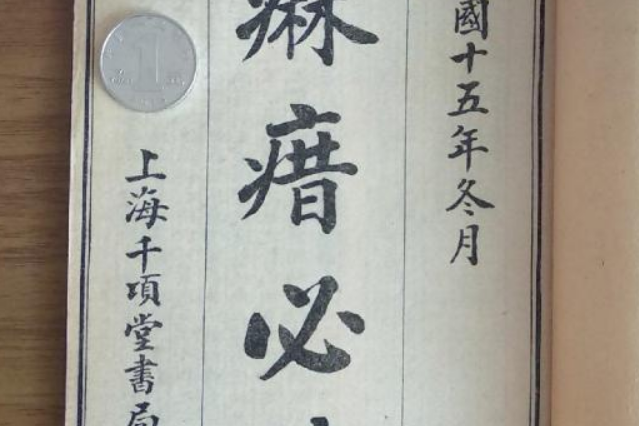 國十五年冬月
痳瘄必
上海千頃堂書局
1